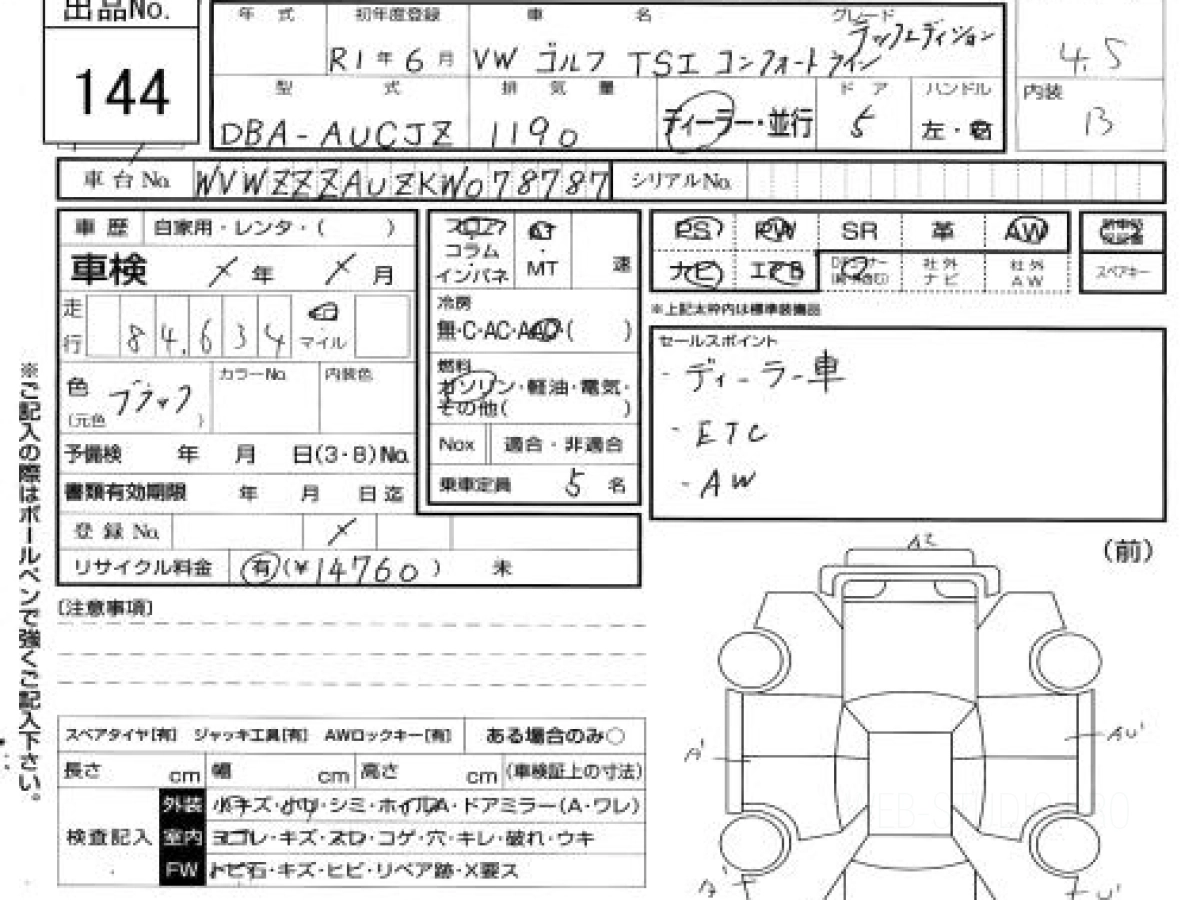 出品No.
144
年式 初年度登録 車名 グレード
R1年6月 VW ゴルフ TSI コンフォートライン テックエディション
4.5
型式 排気量 ディーラー・並行 ドア ハンドル 内装
DBA-AUCJZ 1190 5 左・右 B
車台No. WVWZZZAUZKW078787 シリアルNo.
車歴 自家用・レンタ・( )
車検 年 月
走行 84,634 マイル
色 ブラック カラーNo. 内装色
(元色 )
予備検 年 月 日(3・8)No.
書類有効期限 年 月 日迄
登録No.
リサイクル料金 有(¥14760) 未
フロア AT
コラム
インパネ MT 速
冷房
無・C・AC・AAC・( )
燃料
ガソリン・軽油・電気・
その他( )
Nox 適合・非適合
乗車定員 5名
PS PW SR 革 AW
ナビ エアB 社外ナビ 社外AW スペアキー
※上記太枠内は標準装備品
セールスポイント
- ディーラー車
- ETC
- AW
〔注意事項〕
(前)
A2
A' AU'
U'
スペアタイヤ[有] ジャッキ工具[有] AWロックキー[有] ある場合のみ○
長さ cm 幅 cm 高さ cm (車検証上の寸法)
検査記入
外装 小キズ・小凹・シミ・ホイルA・ドアミラー(A・ワレ)
室内 ヨゴレ・キズ・スレ・コゲ・穴・キレ・破れ・ウキ
FW トビ石・キズ・ヒビ・リペア跡・X要ス
※ご記入の際はボールペンで強くご記入下さい。